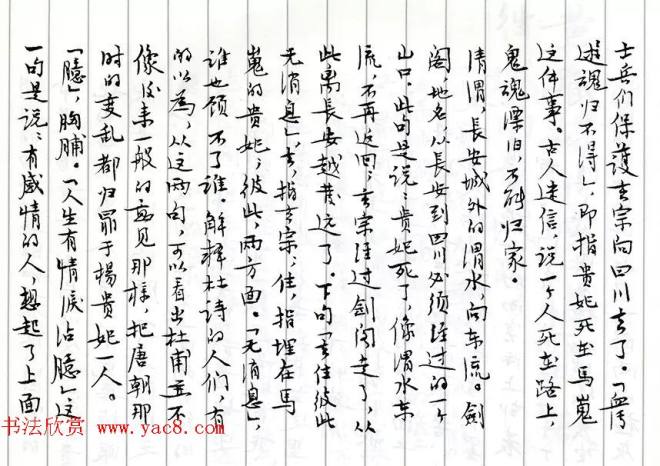 士兵们保護玄宗向四川去了。「血污
遊魂归不得」，即指贵妃死在馬嵬
这件事。古人迷信，说一个人死在路上，
鬼魂漂泊，不能归家。
清渭，長安城外的渭水，向东流。劍
阁，地名，从長安到四川必须经过的一个
山口。此句是说：贵妃死了，像渭水东
流，不再返回；玄宗经过剑阁走了，从
此离長安越来越远了。下句「去住彼此
无消息」，去，指玄宗，住，指埋在马
嵬的贵妃，彼此，两方面。「无消息」，
谁也顾不了谁。解释杜诗的人们，有
的以为，从这两句，可以看出杜甫并不
像后来一般的意见那样，把唐朝那
时的变乱都归罪于楊贵妃一人。
「臆」，胸脯。「人生有情淚沾臆」这
一句是说：有感情的人，想起了上面
书法欣赏 www.yac8.com